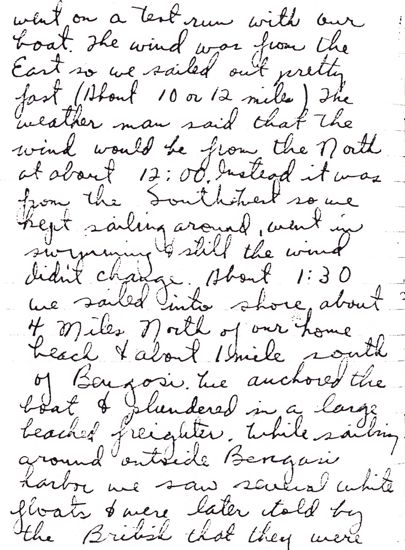 went on a test run with our
boat. The wind was from the
East so we sailed out pretty
fast (About 10 or 12 miles) The
weather man said that the
wind would be from the North
at about 12:00. Instead it was
from the Southwest so we
kept sailing around, went in
swymming & still the wind
didn't change. About 1:30
we sailed into shore about
4 Miles North of our home
beach & about 1 mile south
of Bengasi. We anchored the
boat & plundered in a large
beached freighter. While sailing
around outside Bengasi
harbor we saw several white
floats & were later told by
the British that they were